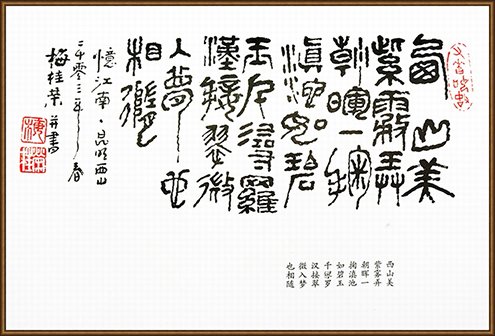 西山美
紫霧弄
朝暉一掬
滇池如碧
玉千尋羅
漢接翠微
入夢也
相隨
憶江南·昆明西山
二千零三年春
梅桂荣并書
西山美
紫雾弄
朝晖一
掬滇池
如碧玉
千浔罗
汉接翠
微入梦
也相随